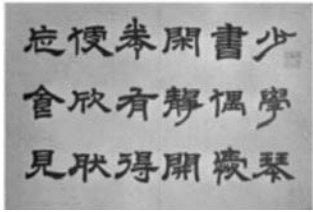 少學琴
書偶愛
閑靜開
卷有得
便欣肰
忘食見